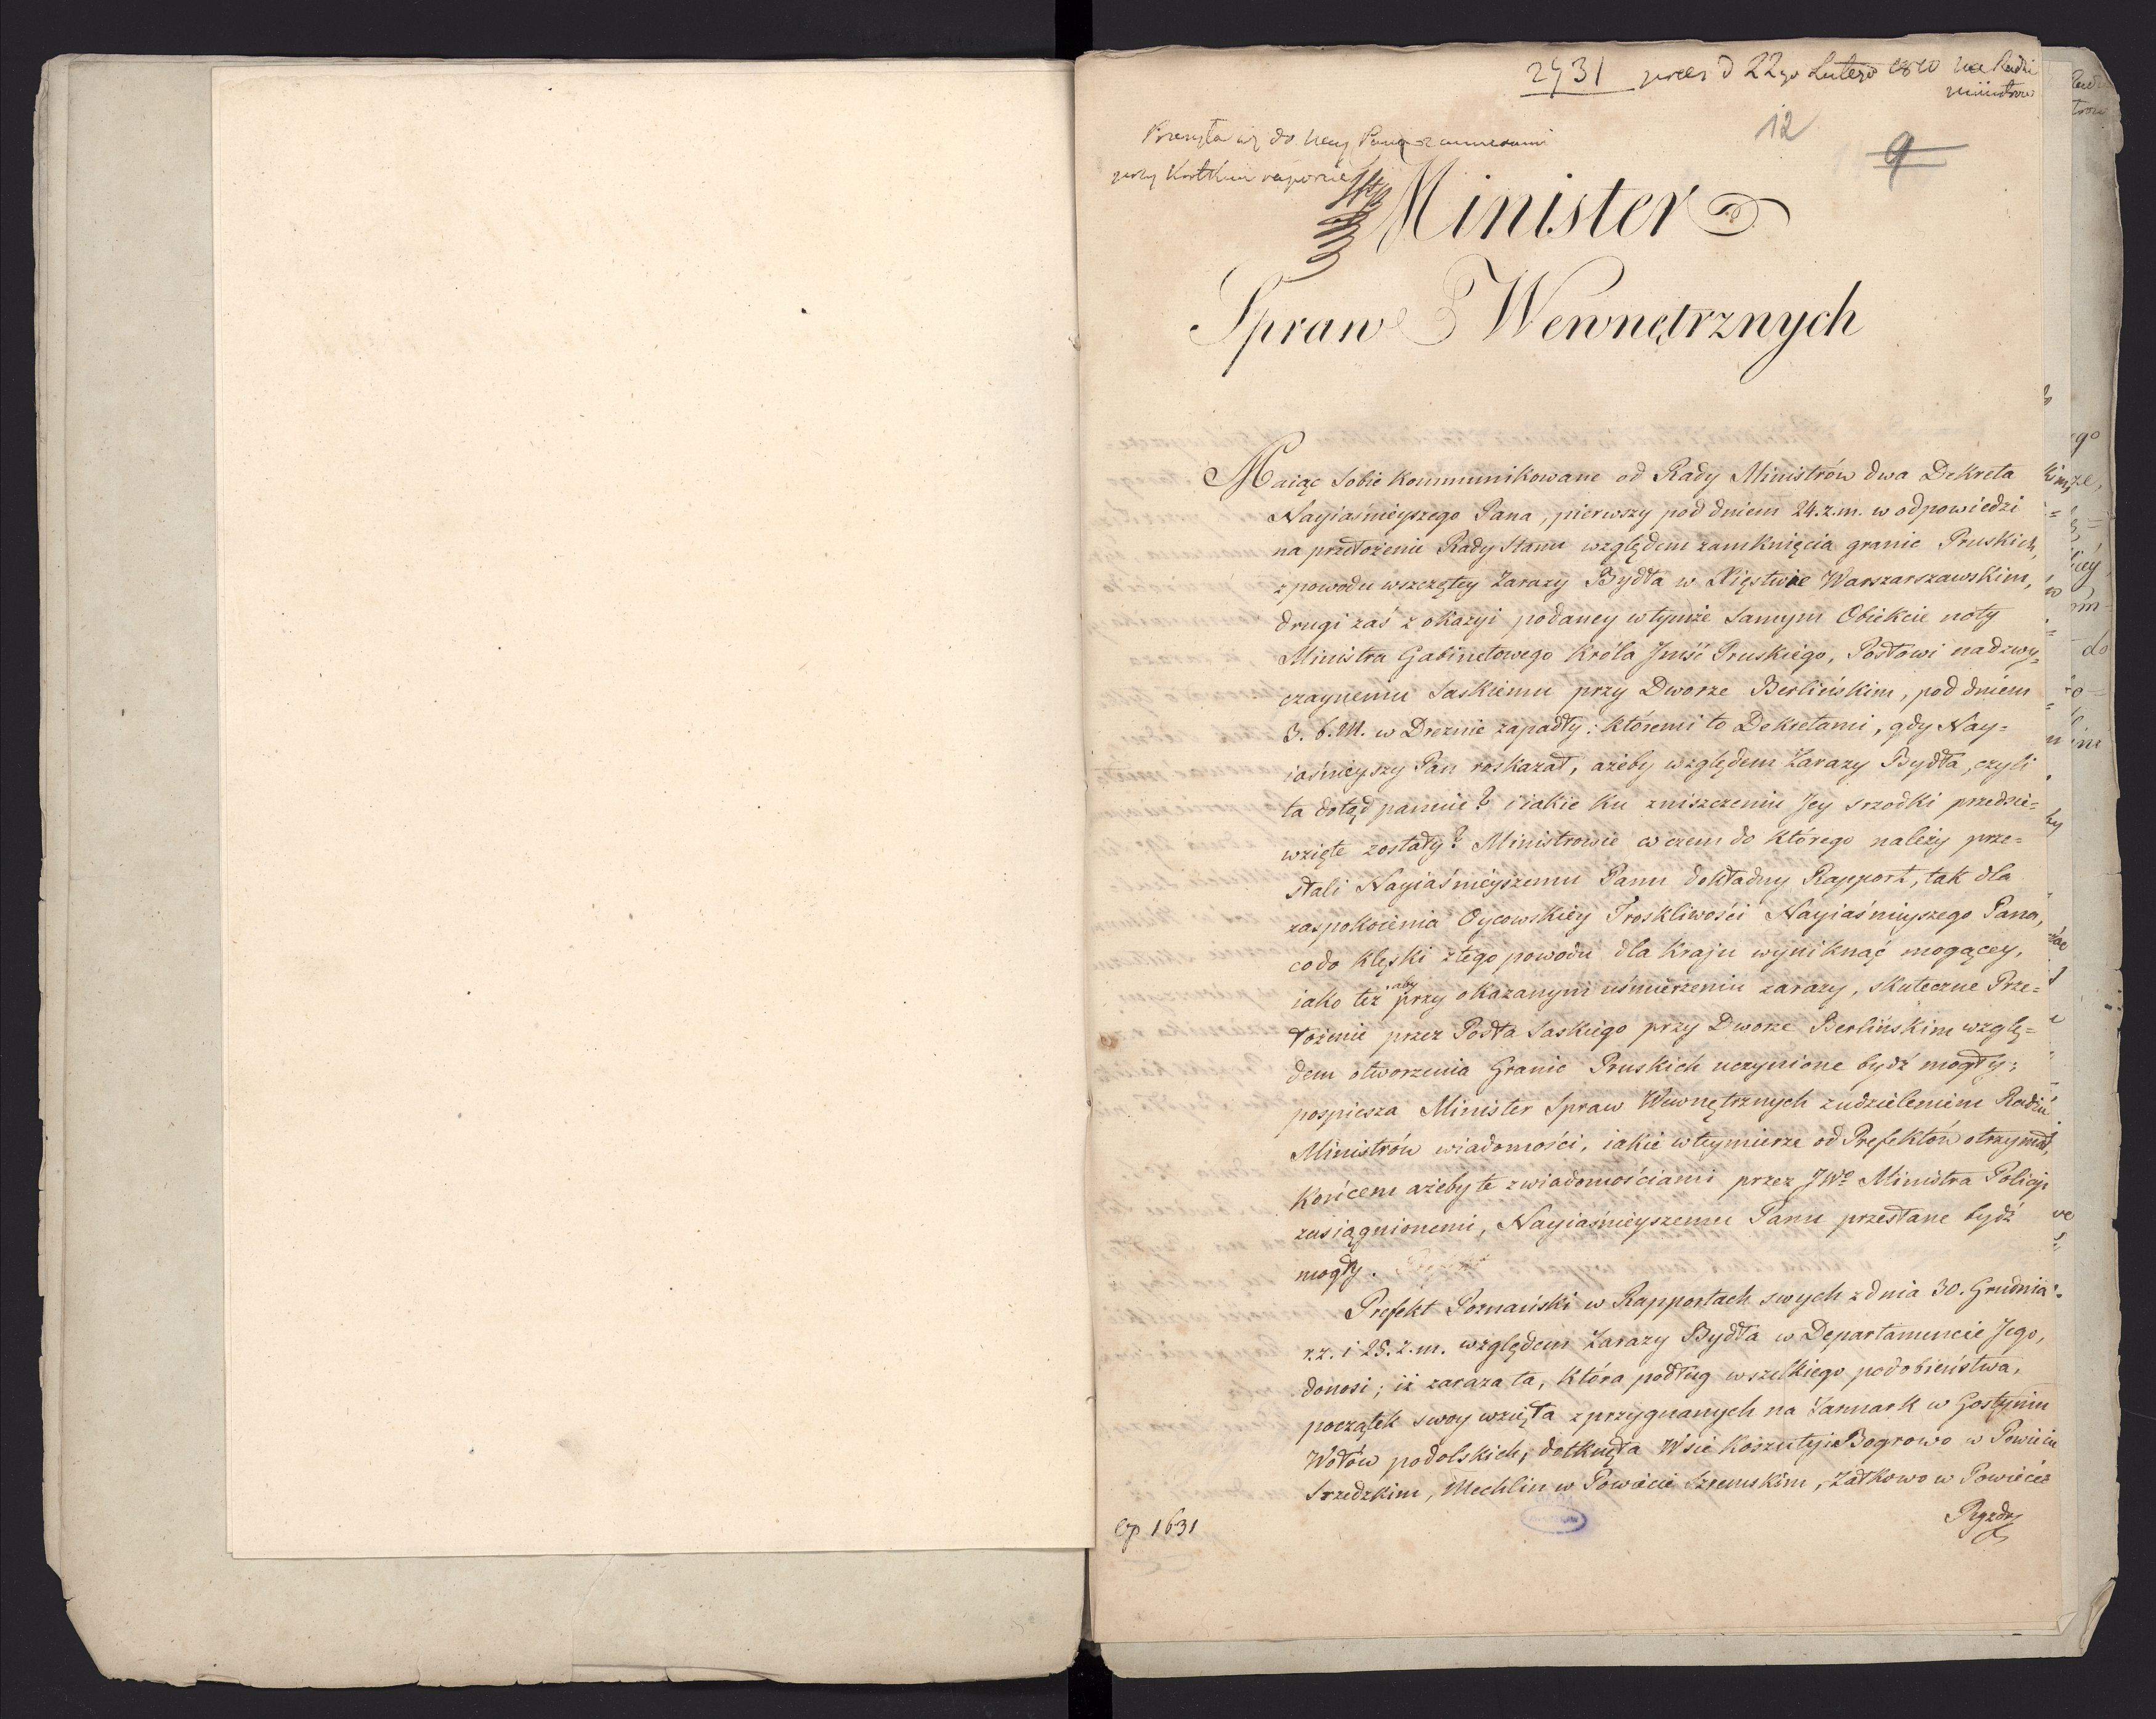 2431 prees d 22go Lutego 1810 na Radzie
Ministrów
12
9
Przesyła się do Nay Pana z annexami
przy Krótkim raporcie
Minister
Spraw Wewnętrznych
Maiąc Sobie kommunikowane od Rady Ministrów dwa Dekreta
Nayiaśnieyszego Pana, pierwszy pod dniem 24. z. m. w odpowiedzi
na przełożenie Rady Stanu względem zamknięcia granic Pruskich,
z powodu wszczętey Zarazy Bydła w Xięstwie Warszarszawskim,
drugi zaś z okazyi podaney w tymże samym Obiekcie noty
Ministra Gabinetowego Króla Jmść Pruskiego, Posłowi nadzwy=
czaynemu Saskiemu przy Dworze Berlińskim, pod dniem
3. b. M. w Dreznie zapadły: któremi to Dekretami, gdy Nay=
iaśnieyszy Pan roskazał, ażeby względem Zarazy Bydła, czyli
ta dotąd panuie? i iakie ku zniszczeniu Jey srzodki przedsię=
wzięte zostały? Ministrowie w czem do którego należy prze=
słali Nayiaśnieyszemu Panu dokładny Rapport, tak dla
zaspokoienia Oycowskiey Troskliwości Nayiaśnieyszego Pana,
co do klęski z tego powodu dla Kraju wyniknąć mogącey,
iako też aby przy okazanym uśmierzeniu zarazy, skuteczne Prze=
łożenie przez Posła Saskiego przy Dworze Berlińskim wzglę=
dem otworzenia Granic Pruskich uczynione bydź mogły;
pospiesza Minister Spraw Wewnętrznych z udzieleniem Radzie
Ministrów wiadomości, iakie w teymierze od Prefektów otrzymał,
końcem ażeby te z wiadomościami przez JWo Ministra Policyi
zasiągnionemi, Nayiaśnieyszemu Panu przesłane bydź
mogły.
Prefekt Poznański w Rapportach swych z dnia 30. Grudnia
r. z. i 25. z. m. względem Zarazy Bydła w Departamencie Jego,
donosi; iż zaraza ta, która podług wszelkiego podobieństwa,
początek swoy wzięła z przygnanych na Jarmark w Gostyniu
Wołów podolskich; dotknęła Wsie Koszuty i Bogrowo w Powiecie
Srzedzkim, Mechlin w Powiecie Szremskim, Załkowo w Powiecie
Pyzdry
Ep 1631